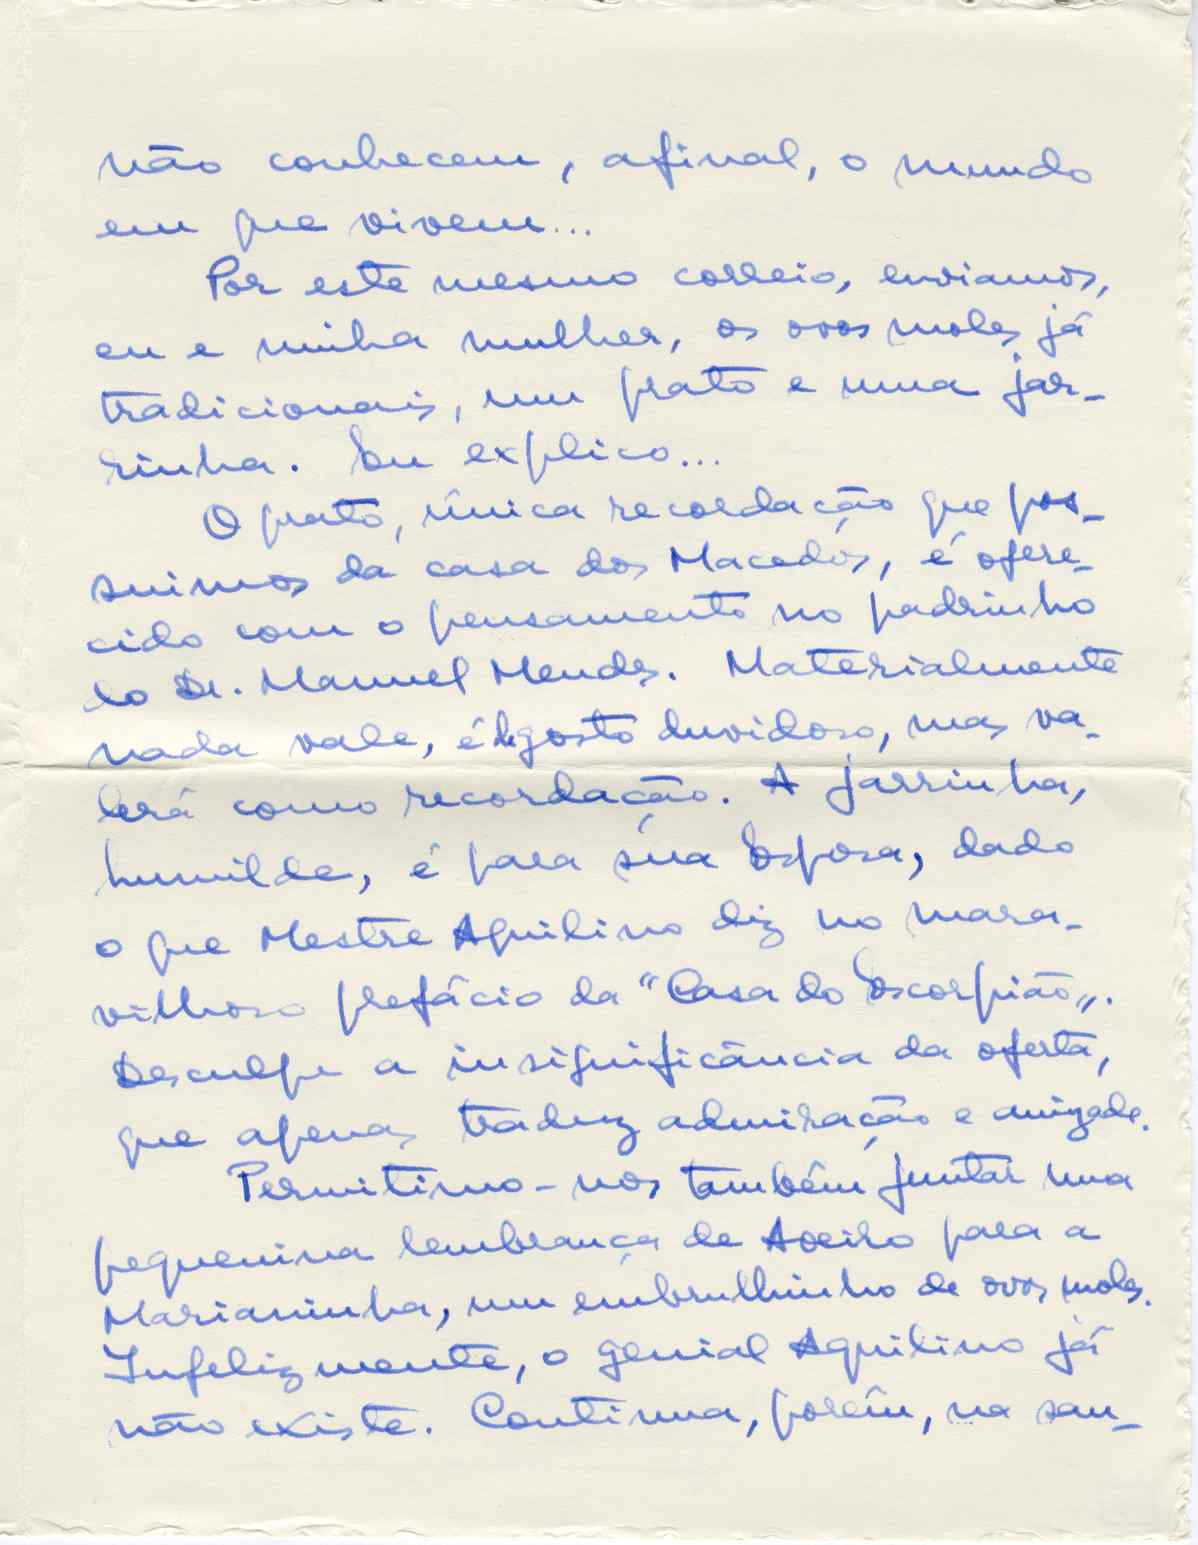 não conhecem, afinal, o mundo
em que vivem...
Por este mesmo correio, enviamos,
eu e minha mulher, os ovos moles já
tradicionais, um prato e uma jar-
rinha. Eu explico...
O prato, única recordação que pos-
suimos da casa dos Macedos, é ofere-
cido com o pensamento no padrinho
do Dr. Manuel Mendes. Materialmente
nada vale, é de gosto duvidoso, mas va-
lerá como recordação. A jarrinha,
humilde, é para sua Esposa, dado
o que Mestre Aquilino diz no mara-
vilhoso prefácio da "Casa do Escorpião".
Desculpe a insignificância da oferta,
que apenas traduz admiração e amizade.
Permitimo-nos também juntar uma
pequenina lembrança de Aveiro para a
Marianinha, um embrulhinho de ovos moles.
Infelizmente, o genial Aquilino já
não existe. Continua, porém, na sau-